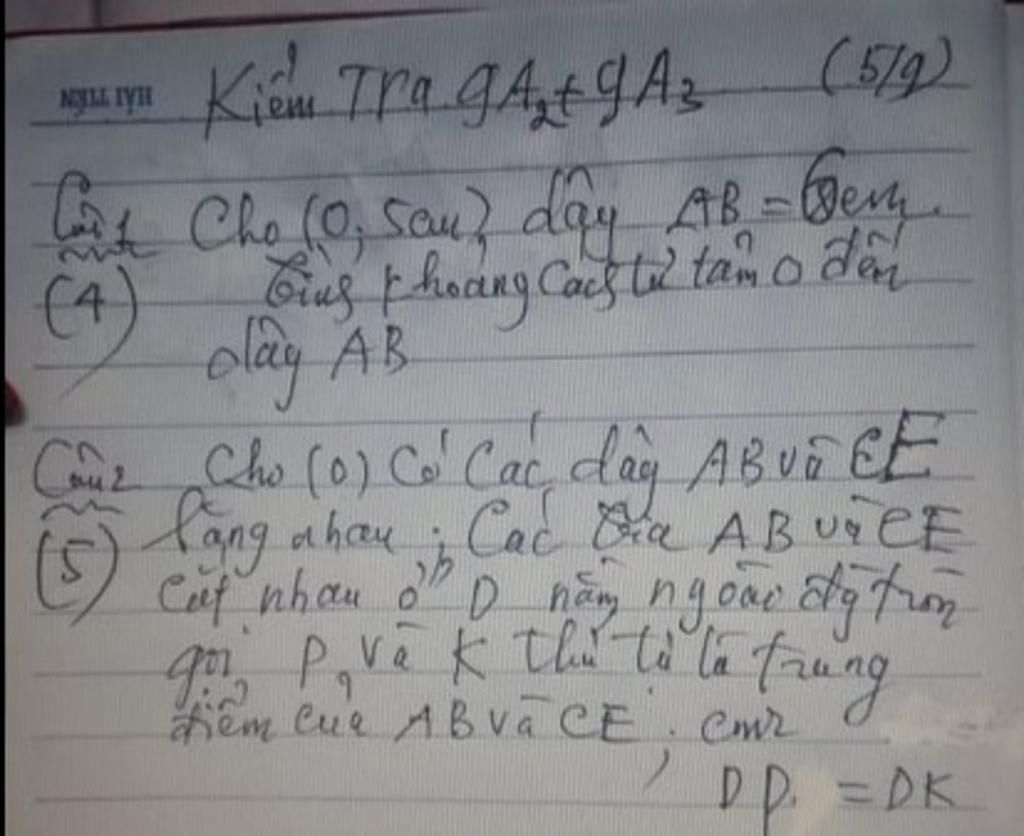 HẢI TIẾN
Kiểm Tra 9A2 + 9A3 (5/9)
Câu 1 Cho (O; 5cm) dây AB = cm.
(4) khoảng Cách từ tâm O đến
dây AB
Câu 2 Cho (O) Có Các dây AB và CE
(5) bằng nhau ; Các tia AB và CE
cắt nhau ở D nằm ngoài đg tròn
gọi P và K thứ tự là trung
điểm của AB và CE ; cmr
DP = DK